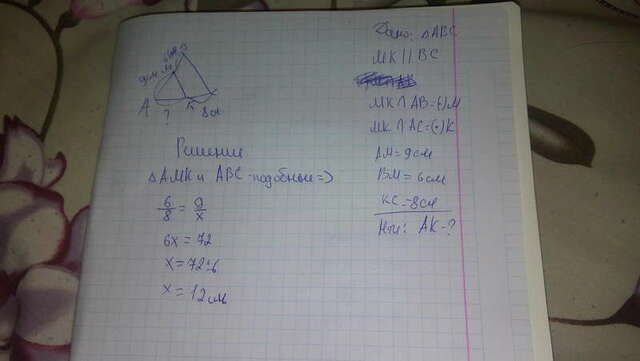 Дано: △ABC
MK || BC
MK ∩ AB = (·) M
MK ∩ AC = (·) K
AM = 9 см
BM = 6 см
KC = 8 см
Найти: AK - ?
A
9 см
6 см
B
?
K
8 см
Решение
△AMK и ABC - подобные =>
6/8 = 9/x
6x = 72
x = 72:6
x = 12 см